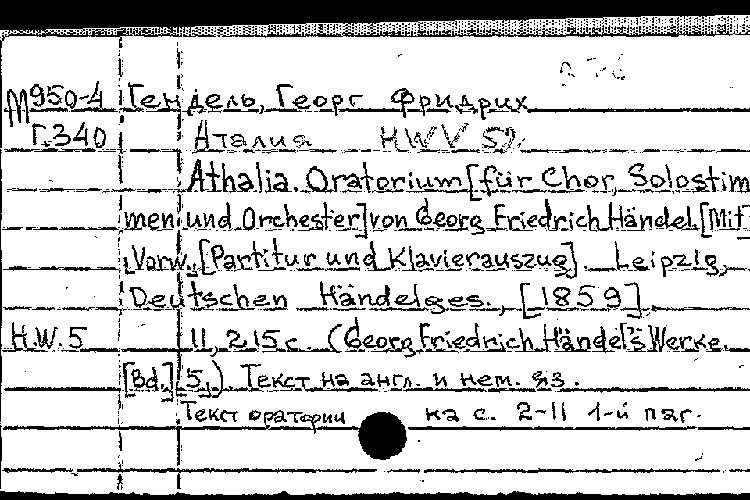 М950-4 Гендель, Георг Фридрих
Г.340 Аталия HWV 52.
Athalia. Oratorium [für Chor, Solostim
men und Orchester] von Georg Friedrich Händel. [Mit
Vorw., [Partitur und Klavierauszug]. Leipzig,
Deutschen Händelges., [1859].
H.W.5 II, 215 с. (Georg Friedrich Händel's Werke.
[Bd.] 5.). Текст на англ. и нем. яз.
Текст оратории на с. 2-11 1-й паг.